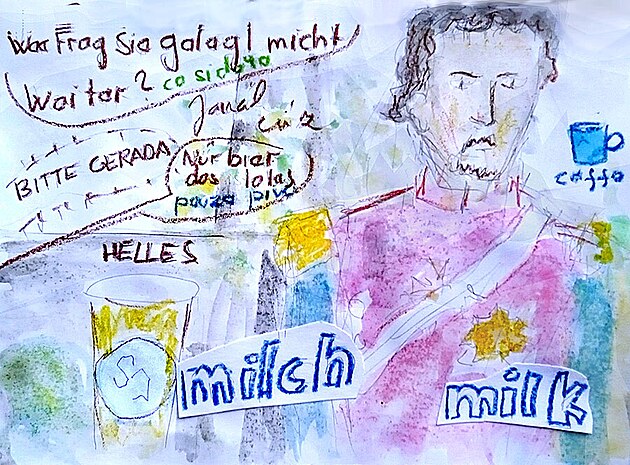 War Frag Sie galagl micht
Waitar?
ca sidato
Janal
BITTE GERADA
Nur bier
das lolas
pouze pivo
caffo
HELLES
milch
milk